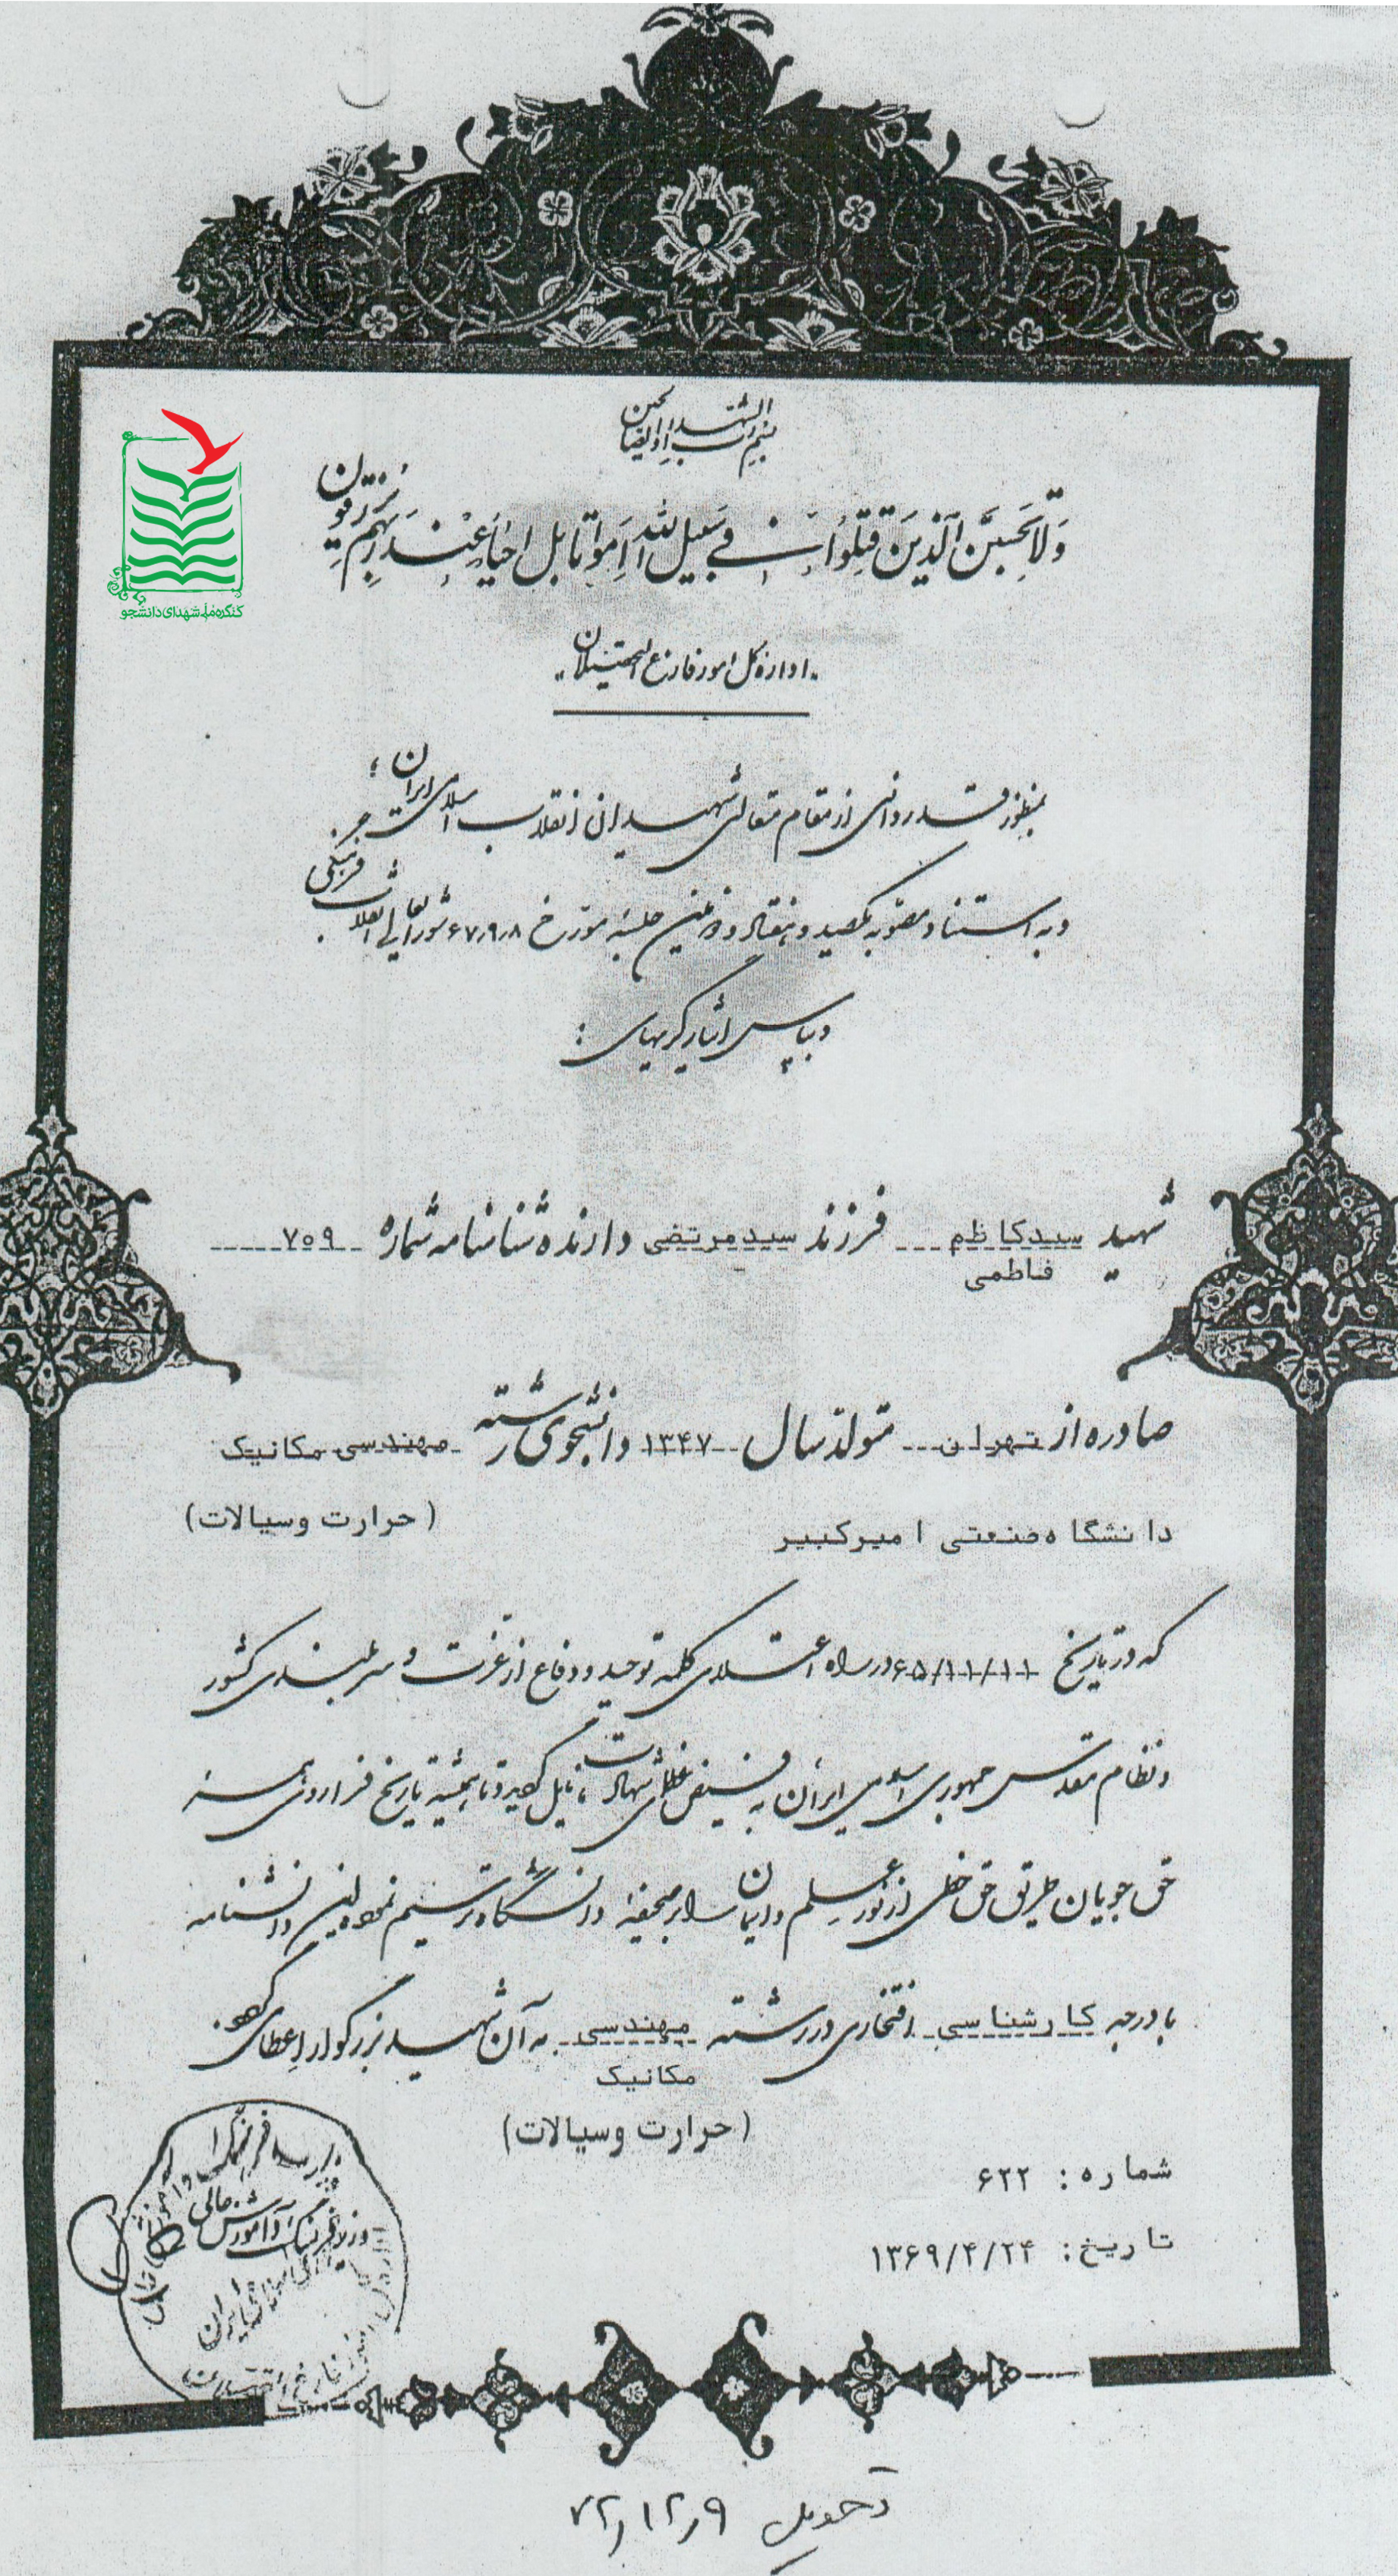 بسم رب الشهداء و الصالحین
وَلا تَحْسَبَنَّ الَّذینَ قُتِلُوا فی سَبیلِ اللهِ اَمْواتاً بَل اَحیاءٌ عِنْدَ رَبِّهِم یُرْزَقُون
کنگره ملی شهدای دانشجو
اداره کل امور فارغ التحصیلان
بمنظور قدردانی از مقام متعالی شهیدان انقلاب اسلامی ایران ؛
و به استناد مصوبه یکصد و هفتاد و دومین جلسه مورخ ۶۷٫۹٫۸ شورای عالی انقلاب فرهنگی
و بپاس ایثارگریهای :
شهید سیدکاظم فرزند سیدمرتضی دارنده شناسنامه شماره ۷۰۹
فاطمی
صادره از تهران متولد سال ۱۳۴۷ دانشجوی رشته مهندسی مکانیک
دانشگاه صنعتی امیرکبیر (حرارت وسیالات)
که در تاریخ ۶۵/۱۱/۱۱ در راه اعتلای کلمه توحید و دفاع از عزت و سربلندی کشور
و نظام مقدس جمهوری اسلامی ایران به فیض عظمای شهادت نایل گردید و تا همیشه تاریخ فرا روی همه
حق جویان طریق حق خطی از نور علم و ایمان را بر صحیفه دانشگاه ترسیم نمود این دانشنامه
با درجه کارشناسی افتخاری در رشته مهندسی به آن شهید بزرگوار اعطا می گردد.
مکانیک
(حرارت وسیالات)
شماره: ۶۲۲
تاریخ: ۱۳۶۹/۴/۲۴
وزارت فرهنگ و آموزش عالی
تحویل ۷۲٫۱۲٫۹